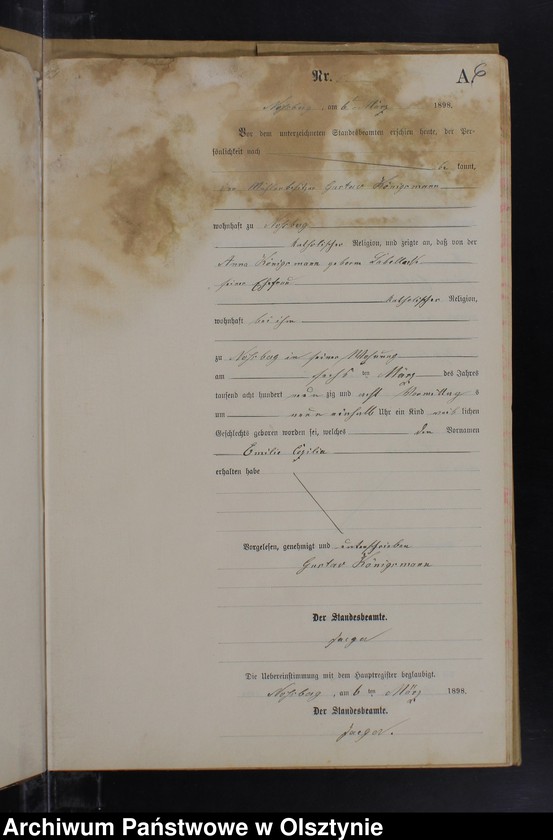 Nr. A
am 6 März 1898.
Von dem unterzeichneten Standesbeamten erschien heute, der Per-
sönlichkeit nach
be kannt,
Gustav Königsmann
wohnhaft zu
katholischer Religion, und zeigte an, daß von der
Anna Königsmann geborne
seine Ehefrau
katholischer Religion,
wohnhaft bei ihm
zu in seiner Wohnung
am sechs ten März des Jahres
tausend acht hundert neun zig und acht Vormittag s
um neun einhalb Uhr ein Kind weib lichen
Geschlechts geboren worden sei, welches den Vornamen
Emilie
erhalten habe
Vorgelesen, genehmigt und unterschrieben
Gustav Königsmann
Der Standesbeamte.
Jaeger
Die Uebereinstimmung mit dem Hauptregister beglaubigt.
am 6 ten März 1898.
Der Standesbeamte.
Jaeger.
Archiwum Państwowe w Olsztynie